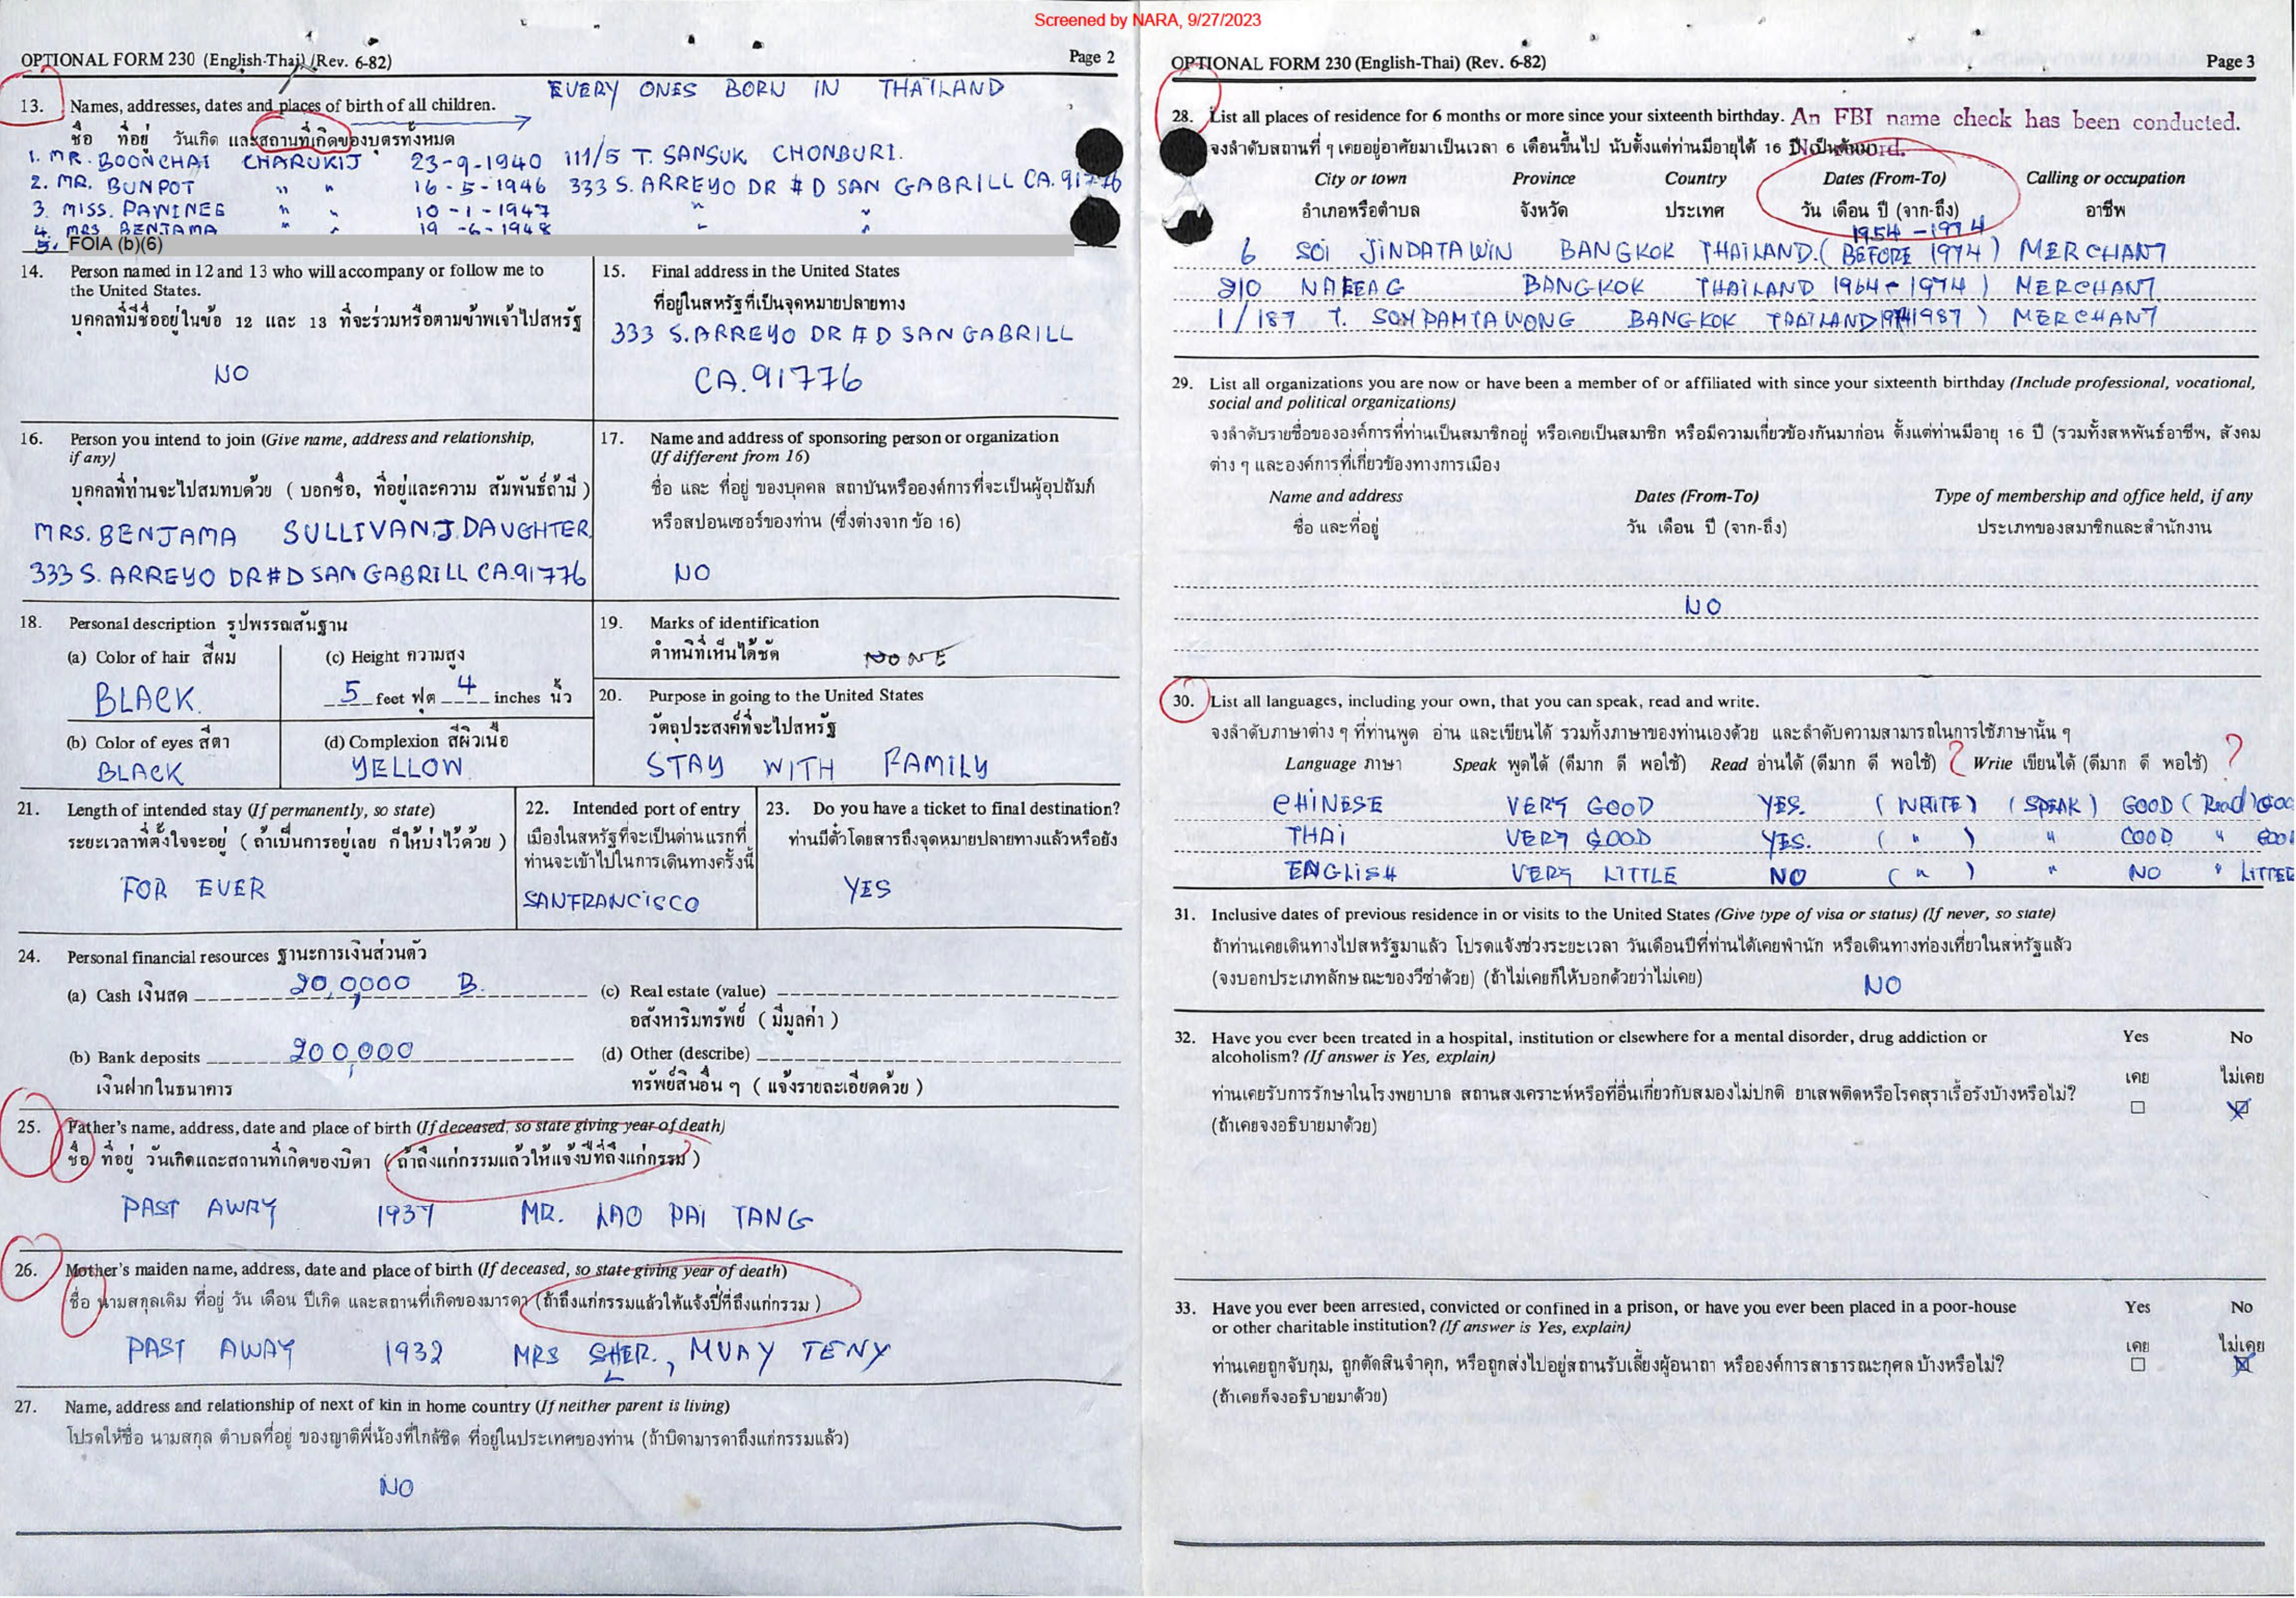 Screened by NARA, 9/27/2023
OPTIONAL FORM 230 (English-Thai) (Rev. 6-82) Page 2
EVERY ONES BORN IN THAILAND
13. Names, addresses, dates and places of birth of all children.
ชื่อ ที่อยู่ วันเกิด และสถานที่เกิดของบุตรทั้งหมด
1. MR. BOONCHAI CHARUKIJ 23-9-1940 111/5 T. SANSUK CHONBURI.
2. MR. BUNPOT " " 16-5-1946 333 S. ARREYO DR # D SAN GABRILL CA. 91776
3. MISS. PAWINEE " " 10-1-1947 " "
4. MRS BENJAMA " " 19-6-1948 " "
5. FOIA (b)(6)
14. Person named in 12 and 13 who will accompany or follow me to
the United States.
บุคคลที่มีชื่ออยู่ในข้อ 12 และ 13 ที่จะร่วมหรือตามข้าพเจ้าไปสหรัฐ
NO
15. Final address in the United States
ที่อยู่ในสหรัฐที่เป็นจุดหมายปลายทาง
333 S. ARREYO DR # D SAN GABRILL
CA. 91776
16. Person you intend to join (Give name, address and relationship,
if any)
บุคคลที่ท่านจะไปสมทบด้วย ( บอกชื่อ, ที่อยู่และความ สัมพันธ์ถ้ามี )
MRS. BENJAMA SULLIVAN.J. DAUGHTER
333 S. ARREYO DR # D SAN GABRILL CA. 91776
17. Name and address of sponsoring person or organization
(If different from 16)
ชื่อ และ ที่อยู่ ของบุคคล สถาบันหรือองค์การที่จะเป็นผู้อุปถัมภ์
หรือสปอนเซอร์ของท่าน (ซึ่งต่างจาก ข้อ 16)
NO
18. Personal description รูปพรรณสันฐาน
(a) Color of hair สีผม
BLACK.
(c) Height ความสูง
5 feet ฟุต 4 inches นิ้ว
(b) Color of eyes สีตา
BLACK
(d) Complexion สีผิวเนื้อ
YELLOW
19. Marks of identification
ตำหนิที่เห็นได้ชัด NONE
20. Purpose in going to the United States
วัตถุประสงค์ที่จะไปสหรัฐ
STAY WITH FAMILY
21. Length of intended stay (If permanently, so state)
ระยะเวลาที่ตั้งใจจะอยู่ ( ถ้าเป็นการอยู่เลย ก็ให้บ่งไว้ด้วย )
FOR EVER
22. Intended port of entry
เมืองในสหรัฐที่จะเป็นด่านแรกที่
ท่านจะเข้าไปในการเดินทางครั้งนี้
SANFRANCISCO
23. Do you have a ticket to final destination?
ท่านมีตั๋วโดยสารถึงจุดหมายปลายทางแล้วหรือยัง
YES
24. Personal financial resources ฐานะการเงินส่วนตัว
(a) Cash เงินสด 20,0000 B.
(c) Real estate (value)
อสังหาริมทรัพย์ ( มีมูลค่า )
(b) Bank deposits 200,000
เงินฝากในธนาคาร
(d) Other (describe)
ทรัพย์สินอื่น ๆ ( แจ้งรายละเอียดด้วย )
25. Father's name, address, date and place of birth (If deceased, so state giving year of death)
ชื่อ ที่อยู่ วันเกิดและสถานที่เกิดของบิดา ( ถ้าถึงแก่กรรมแล้วให้แจ้งปีที่ถึงแก่กรรม )
PAST AWAY 1937 MR. LAO PAI TANG
26. Mother's maiden name, address, date and place of birth (If deceased, so state giving year of death)
ชื่อ นามสกุลเดิม ที่อยู่ วัน เดือน ปีเกิด และสถานที่เกิดของมารดา (ถ้าถึงแก่กรรมแล้วให้แจ้งปีที่ถึงแก่กรรม )
PAST AWAY 1932 MRS SHER., MUAY TENY
27. Name, address and relationship of next of kin in home country (If neither parent is living)
โปรดให้ชื่อ นามสกุล ตำบลที่อยู่ ของญาติพี่น้องที่ใกล้ชิด ที่อยู่ในประเทศของท่าน (ถ้าบิดามารดาถึงแก่กรรมแล้ว)
NO
OPTIONAL FORM 230 (English-Thai) (Rev. 6-82) Page 3
28. List all places of residence for 6 months or more since your sixteenth birthday. An FBI name check has been conducted.
จงลำดับสถานที่ ๆ เคยอยู่อาศัยมาเป็นเวลา 6 เดือนขึ้นไป นับตั้งแต่ท่านมีอายุได้ 16 ปี
City or town Province Country Dates (From-To) Calling or occupation
อำเภอหรือตำบล จังหวัด ประเทศ วัน เดือน ปี (จาก-ถึง) อาชีพ
1954 - 1974
6 SOI JINDATAWIN BANGKOK THAILAND. ( BEFORE 1974 ) MERCHANT
210 NAREAG BANGKOK THAILAND 1964 - 1974 ) MERCHANT
1/187 T. SOMPAMTAWONG BANGKOK THAILAND 1987 ) MERCHANT
29. List all organizations you are now or have been a member of or affiliated with since your sixteenth birthday (Include professional, vocational,
social and political organizations)
จงลำดับรายชื่อขององค์การที่ท่านเป็นสมาชิกอยู่ หรือเคยเป็นสมาชิก หรือมีความเกี่ยวข้องกันมาก่อน ตั้งแต่ท่านมีอายุ 16 ปี (รวมทั้งสหพันธ์อาชีพ, สังคม
ต่าง ๆ และองค์การที่เกี่ยวข้องทางการเมือง
Name and address Dates (From-To) Type of membership and office held, if any
ชื่อ และที่อยู่ วัน เดือน ปี (จาก-ถึง) ประเภทของสมาชิกและสำนักงาน
NO
30. List all languages, including your own, that you can speak, read and write.
จงลำดับภาษาต่าง ๆ ที่ท่านพูด อ่าน และเขียนได้ รวมทั้งภาษาของท่านเองด้วย และลำดับความสามารถในการใช้ภาษานั้น ๆ
Language ภาษา Speak พูดได้ (ดีมาก ดี พอใช้) Read อ่านได้ (ดีมาก ดี พอใช้) ? Write เขียนได้ (ดีมาก ดี พอใช้) ?
CHINESE VERY GOOD YES. ( WRITE ) ( SPEAK ) GOOD ( Read ) GOO
THAI VERY GOOD YES. ( " ) " GOOD " GOO
ENGLISH VERY LITTLE NO ( " ) " NO " LITTEE
31. Inclusive dates of previous residence in or visits to the United States (Give type of visa or status) (If never, so state)
ถ้าท่านเคยเดินทางไปสหรัฐมาแล้ว โปรดแจ้งช่วงระยะเวลา วันเดือนปีที่ท่านได้เคยพำนัก หรือเดินทางท่องเที่ยวในสหรัฐแล้ว
(จงบอกประเภทลักษณะของวีซ่าด้วย) (ถ้าไม่เคยก็ให้บอกด้วยว่าไม่เคย) NO
32. Have you ever been treated in a hospital, institution or elsewhere for a mental disorder, drug addiction or Yes No
alcoholism? (If answer is Yes, explain)
เคย ไม่เคย
ท่านเคยรับการรักษาในโรงพยาบาล สถานสงเคราะห์หรือที่อื่นเกี่ยวกับสมองไม่ปกติ ยาเสพติดหรือโรคสุราเรื้อรังบ้างหรือไม่?
(ถ้าเคยจงอธิบายมาด้วย)
33. Have you ever been arrested, convicted or confined in a prison, or have you ever been placed in a poor-house Yes No
or other charitable institution? (If answer is Yes, explain)
เคย ไม่เคย
ท่านเคยถูกจับกุม, ถูกตัดสินจำคุก, หรือถูกส่งไปอยู่สถานรับเลี้ยงผู้อนาถา หรือองค์การสาธารณะกุศล บ้างหรือไม่?
(ถ้าเคยก็จงอธิบายมาด้วย)